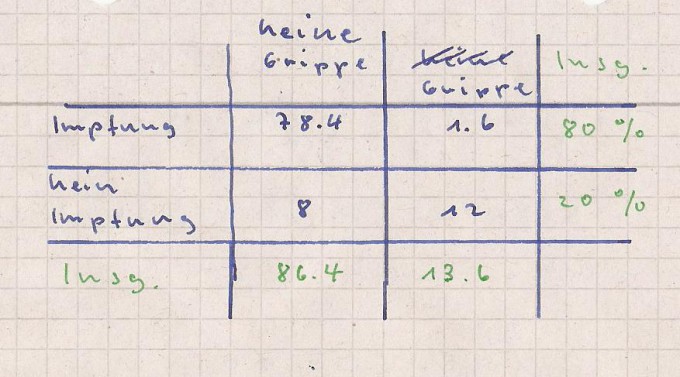 keine
Grippe
keine
Grippe
Insg.
Impfung 78.4 1.6 80 %
kein
Impfung 8 12 20 %
Insg. 86.4 13.6